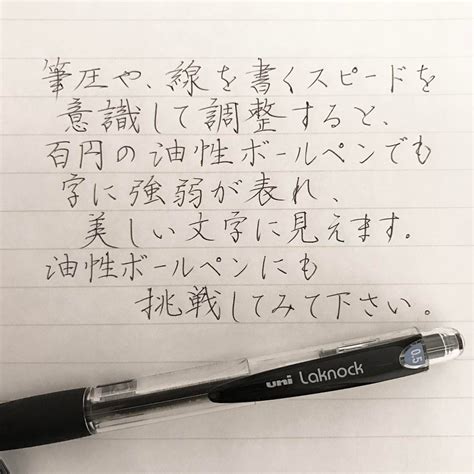 筆圧や、線を書くスピードを
意識して調整すると、
百円の油性ボールペンでも
字に強弱が表れ、
美しい文字に見えます。
油性ボールペンにも
挑戦してみて下さい。
0.5
uni Laknock